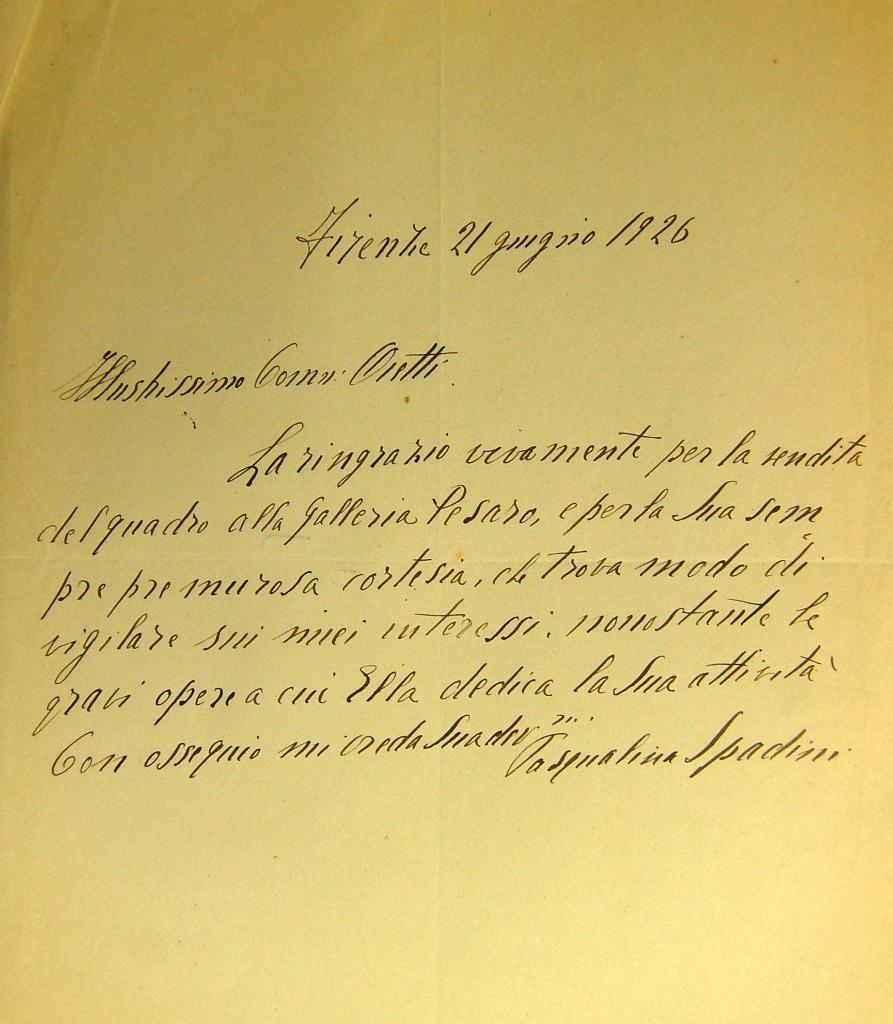 Firenze 21 giugno 1926
Illustrissimo Comm. Oietti
La ringrazio vivamente per la vendita
del quadro alla Galleria Pesaro, e per la Sua sem
pre premurosa cortesia, che trova modo di
vigilare sui miei interessi, nonostante le
gravi opere a cui Ella dedica la Sua attività
Con ossequio mi creda Sua dev. Pasqualina Spadini